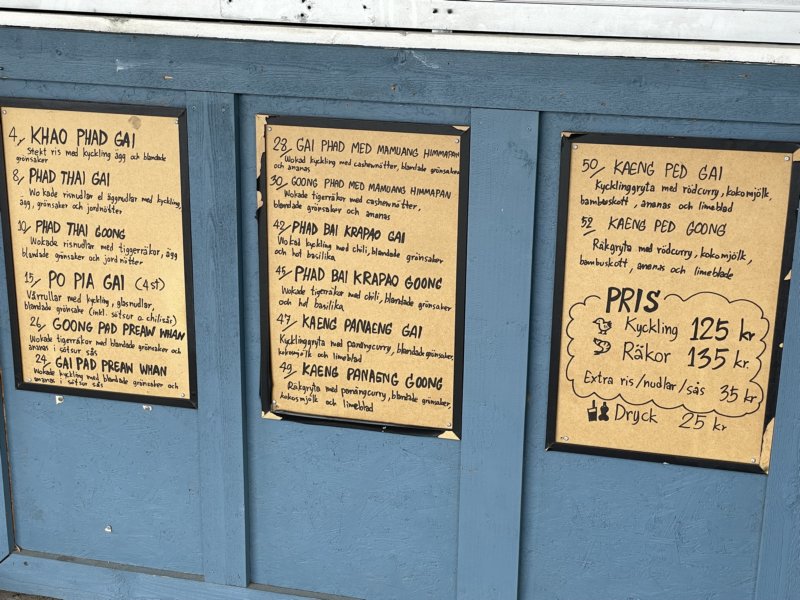 4, KHAO PHAD GAI
Stekt ris med kyckling ägg och blandade
grönsaker
8, PHAD THAI GAI
Wokade risnudlar el äggnudlar med kyckling,
ägg, grönsaker och jordnötter
10, PHAD THAI GOONG
Wokade risnudlar med tiggerräkor, ägg
blandade grönsaker och jordnötter
15, PO PIA GAI (4st)
Vårrullar med kyckling, glasnudlar,
blandade grönsaker (inkl. sötsur o chilisås)
26, GOONG PAD PREAW WHAN
Wokade tigerräkor med blandade grönsaker och
ananas i sötsur sås
24, GAI PAD PREAW WHAN
Wokade kyckling med blandade grönsaker och
ananas i sötsur sås
28, GAI PHAD MED MAMUANG HIMMAPAN
Wokad kyckling med cashewnötter, blandade grönsaker
och ananas
30, GOONG PHAD MED MAMUANG HIMMAPAN
Wokade tigerräkor med cashewnötter,
blandade grönsaker och ananas
42, PHAD BAI KRAPAO GAI
Wokad kyckling med chili, blandade grönsaker
och hot basilika
45, PHAD BAI KRAPAO GOONG
Wokade tigerräkor med chili, blandade grönsaker
och hot basilika
47, KAENG PANAENG GAI
Kycklinggryta med panangcurry, blandade grönsaker,
kokosmjölk och limeblad
49, KAENG PANAENG GOONG
Räkgryta med panangcurry, blandade grönsaker,
kokosmjölk och limeblad
50, KAENG PED GAI
Kycklinggryta med rödcurry, kokomjölk,
bambuskott, ananas och limeblad
52, KAENG PED GOONG
Räkgryta med rödcurry, kokomjölk,
bambuskott, ananas och limeblade
PRIS
Kyckling 125 kr
Räkor 135 kr.
Extra ris/nudlar/sås 35 kr
Dryck 25 kr